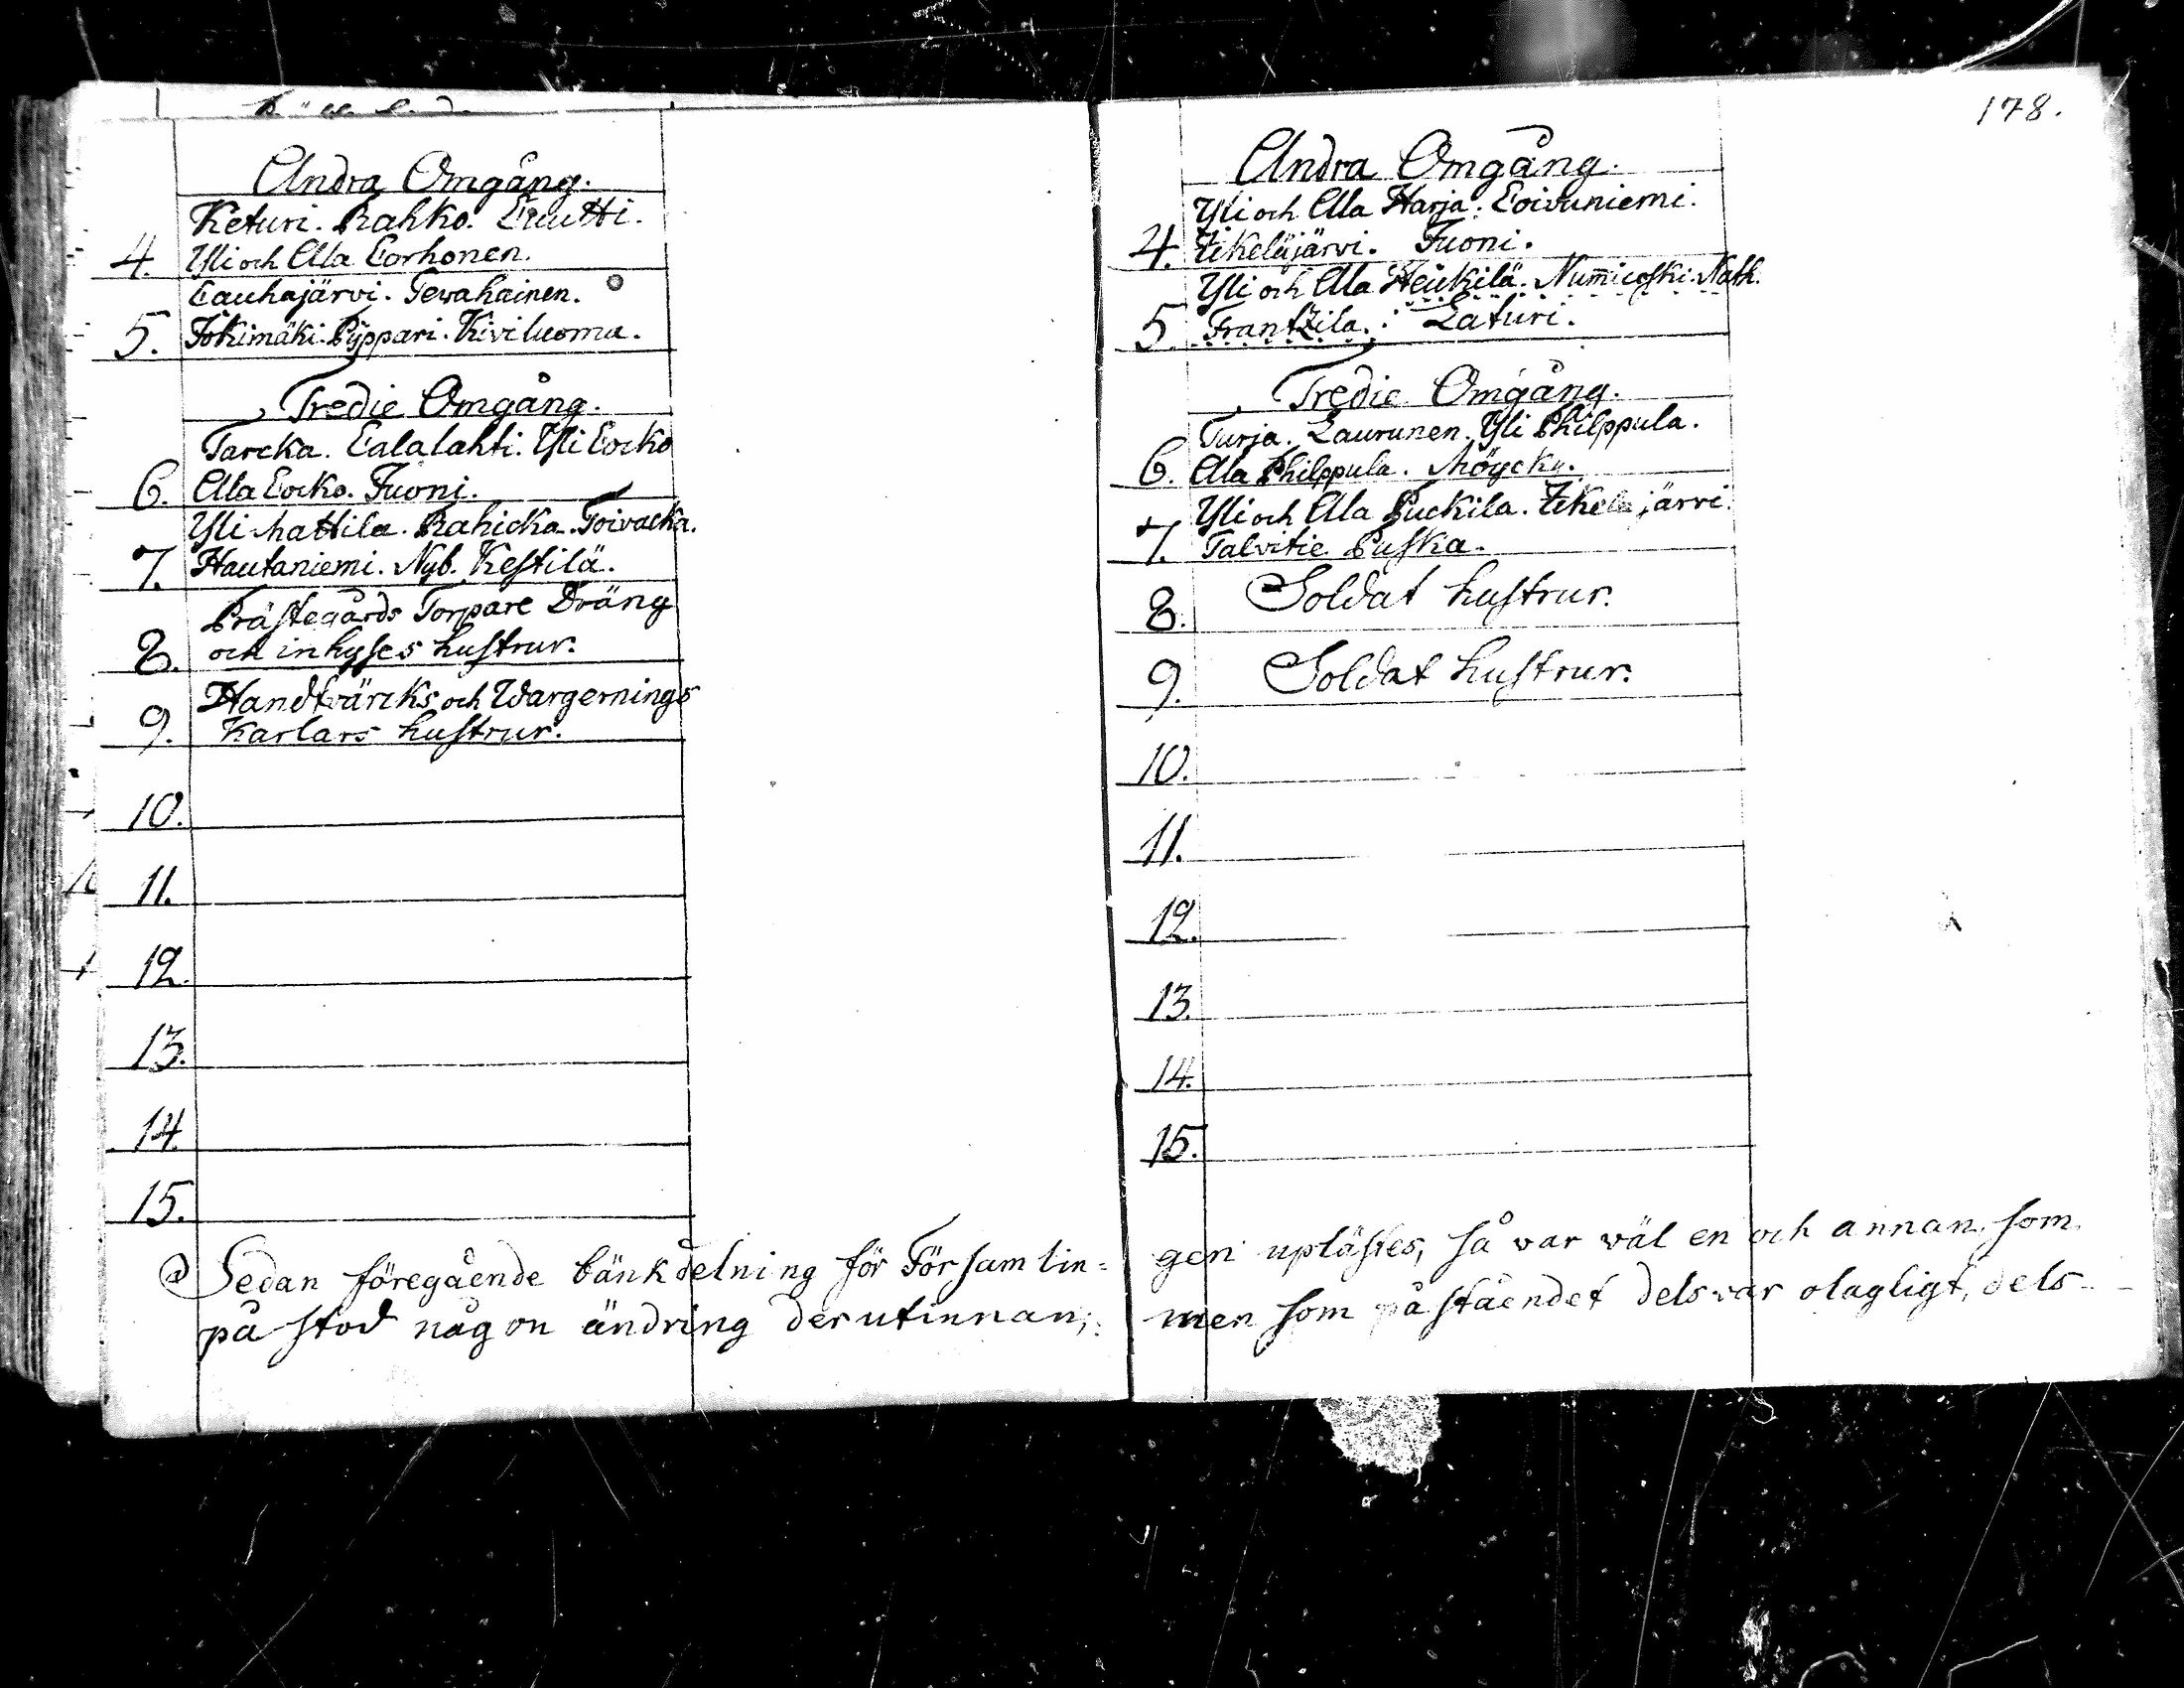 Andra Omgång.
Keturi. Rahko. Knutti.
4. Yli och Ala Corhonen.
Cauhajärvi. Tewahainen.
5. Jokimäki. Pyppari. Kiviluoma.
Tredie Omgång.
Tarcka. Calalahti. Yli Cocko
6. Ala Cocko. Fuoni.
Yli Mattila. Rahicka. Toivacka.
7. Hautaniemi. Nyb. Kestilä.
Prästegårds Torpare Dräng
8. och inhyses hustrur.
Handtvärcks och Wargernings
9. Karlars hustrur.
10.
11.
12.
13.
14.
15.
Sedan föregående bänkdelning för Församlin=
på stod någon ändring derutinnan;
178.
Andra Omgång.
Yli och Ala Harja. Coivuniemi.
4. Ikeläjärvi. Fuoni.
Yli och Ala Heickilä. Numicoski. Nath.
5. Frantzila. Laturi.
Tredie Omgång.
Turja. Laurunen. Yli Philppula.
6. Ala Philppula. Möycky.
Yli och Ala Puckila. Ikeläjärvi.
7. Talvitie. Puska.
8. Soldat hustrur.
9. Soldat hustrur.
10.
11.
12.
13.
14.
15.
gen uplästes, så var wäl en och annan, som
men som påståendet dels var olagligt, dels